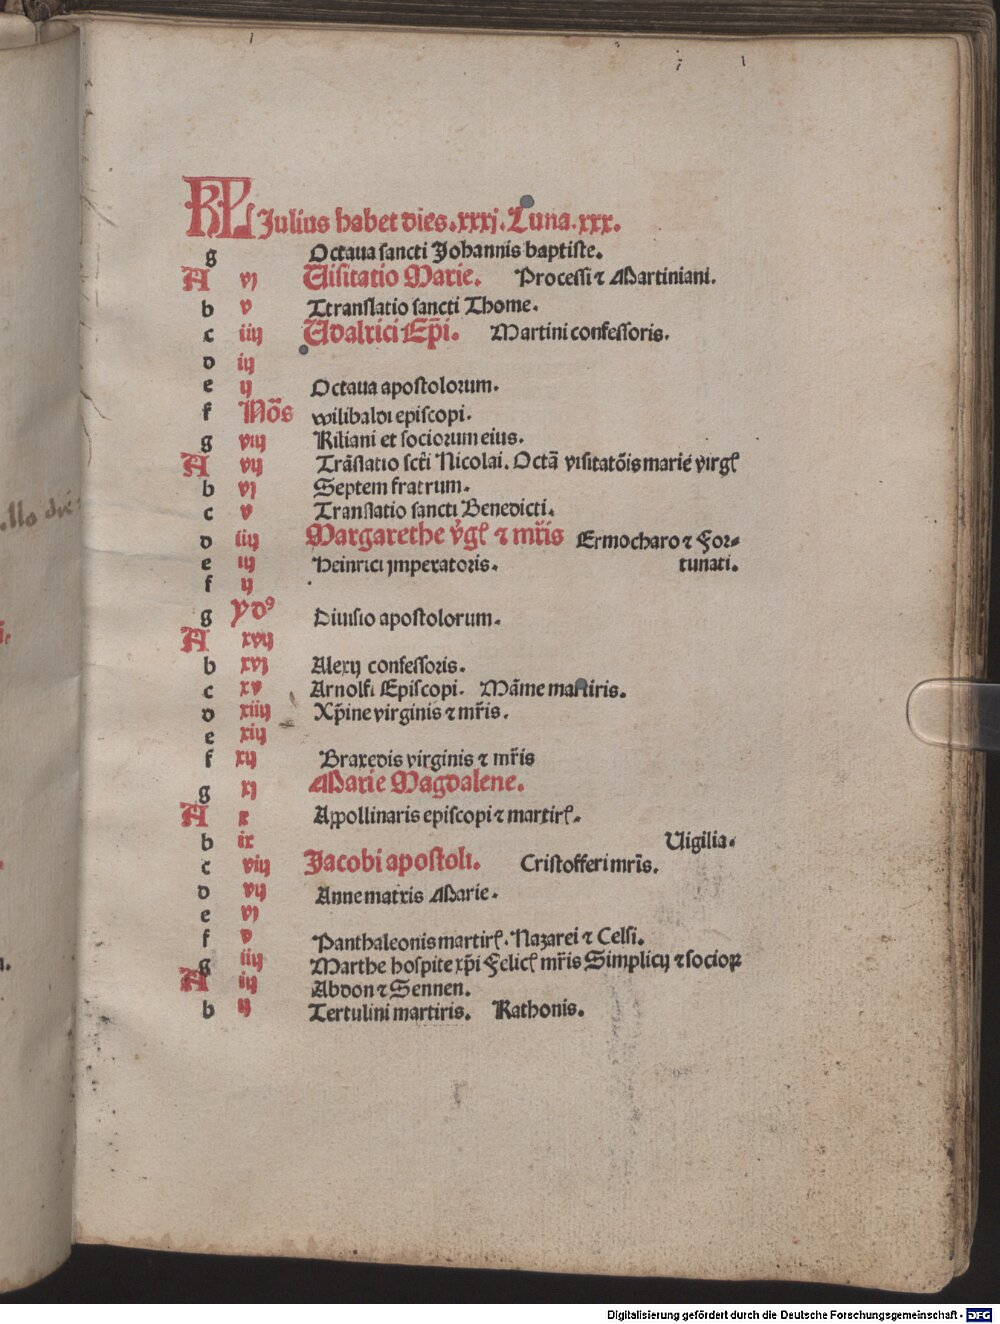 KL Julius habet dies.xxxj.Luna.xxx.
g Octaua sancti Johannis baptiste.
A vj Uisitatio Marie. Processi ⁊ Martiniani.
b v Ttranslatio sancti Thome.
c iiij Udalrici Ep̄i. Martini confessoris.
d iij
e ij Octaua apostolorum.
f Nōs wilibaldi episcopi.
g viij Kiliani et sociorum eius.
A vij Trāslatio sct̄i Nicolai. Octā visitatōis marie virgꝭ
b vj Septem fratrum.
c v Translatio sancti Benedicti.
d iiij Margarethe v̇gꝭ ⁊ mr̄is Ermocharo ⁊ For⸗
e iij Heinrici jmperatoris. tunati.
f ij
g ydꝰ Diuisio apostolorum.
A xvij
b xvj Alexij confessoris.
c xv Arnolfi Episcopi. Māme martiris.
d xiiij Xp̄ine virginis ⁊ mr̄is.
e xiij
f xij Braxedis virginis ⁊ mr̄is
g xj Marie Magdalene.
A x Appollinaris episcopi ⁊ martirꝭ.
b ix Uigilia.
c viij Jacobi apostoli. Cristofferi mr̄is.
d vij Anne matris Marie.
e vj
f v Panthaleonis martirꝭ. Nazarei ⁊ Celsi.
g iiij Marthe hospite xp̄i Felicꝭ mr̄is Simplicij ⁊ socioꝝ
A iij Abdon ⁊ Sennen.
b ij Tertulini martiris. Rathonis.
Digitalisierung gefördert durch die Deutsche Forschungsgemeinschaft - DFG